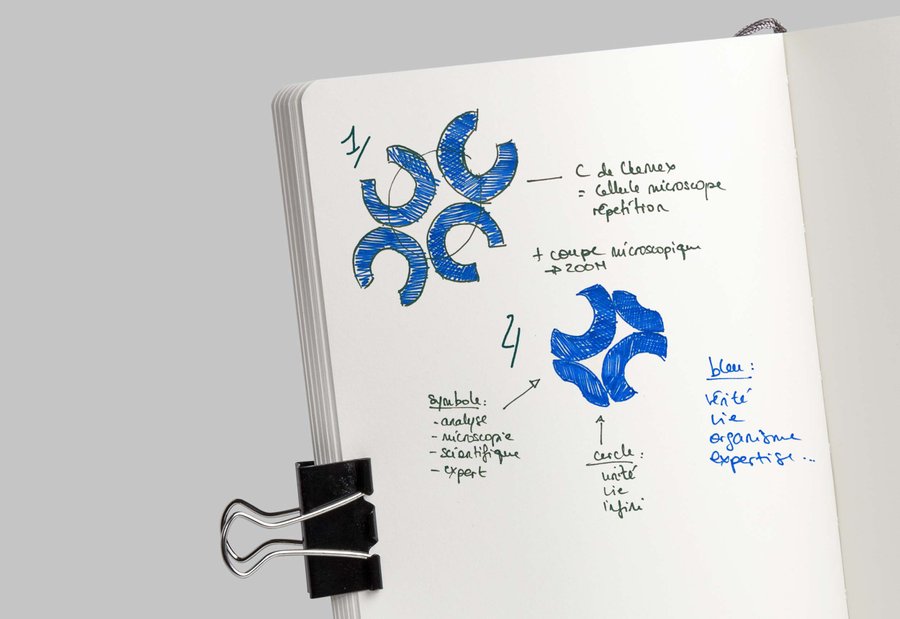 1/
C de Chemex
= cellule microscope
répétition
+ coupe microscopique
→ ZOOM
2/
symbole:
- analyse
- microscopie
- scientifique
- expert
cercle:
unité
vie
infini
bleu:
vérité
vie
organisme
expertise...